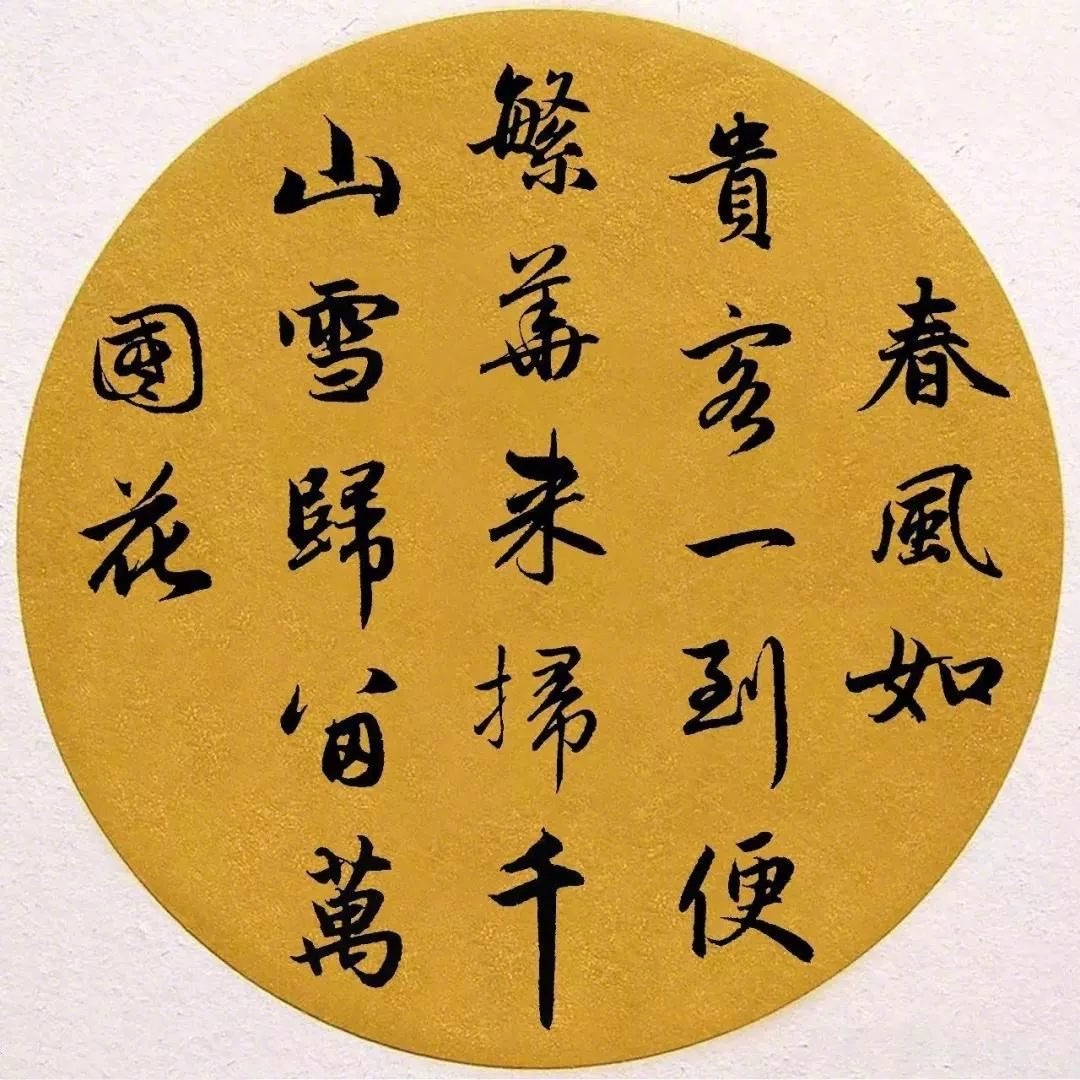 春風如
貴客一到便
繁華来掃千
山雪歸留萬
國花